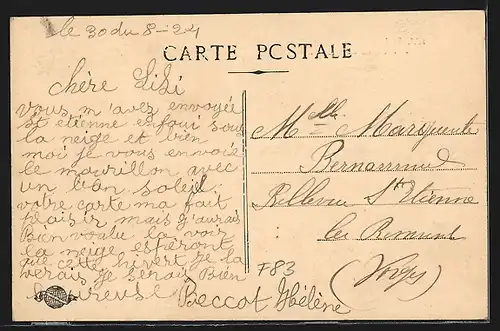 le 30 du 8-24
CARTE POSTALE
chère Lili
vous m'avez envoyée
st etienne enfoui sous
la neige et bien
moi je vous envoie
le mourillon avec
un bon soleil.
votre carte ma fait
plaisir mais j'aurais
Bien voulu la voir
la neige esperont
que cette hivert je la
verais je serais Bien
heureuse Beccot Hélène
Melle Marguerite
Bellevue St Etienne
les Remiremont
F83
(Vosges)